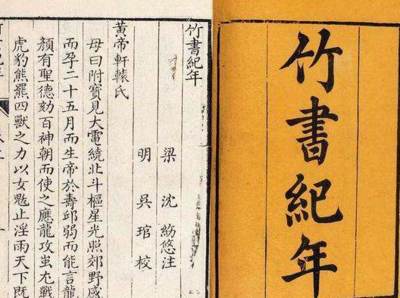 竹書紀年
竹書紀年
梁 沈約注
明 吳琯校
黃帝軒轅氏
母曰附寶見大電繞北斗樞星光照郊野感
而孕二十五月而生帝於壽邱弱而能言龍
顏有聖德劾百神朝而使之應龍攻蚩尤戰
虎豹熊羆四獸之力以女魃止淫雨天下既